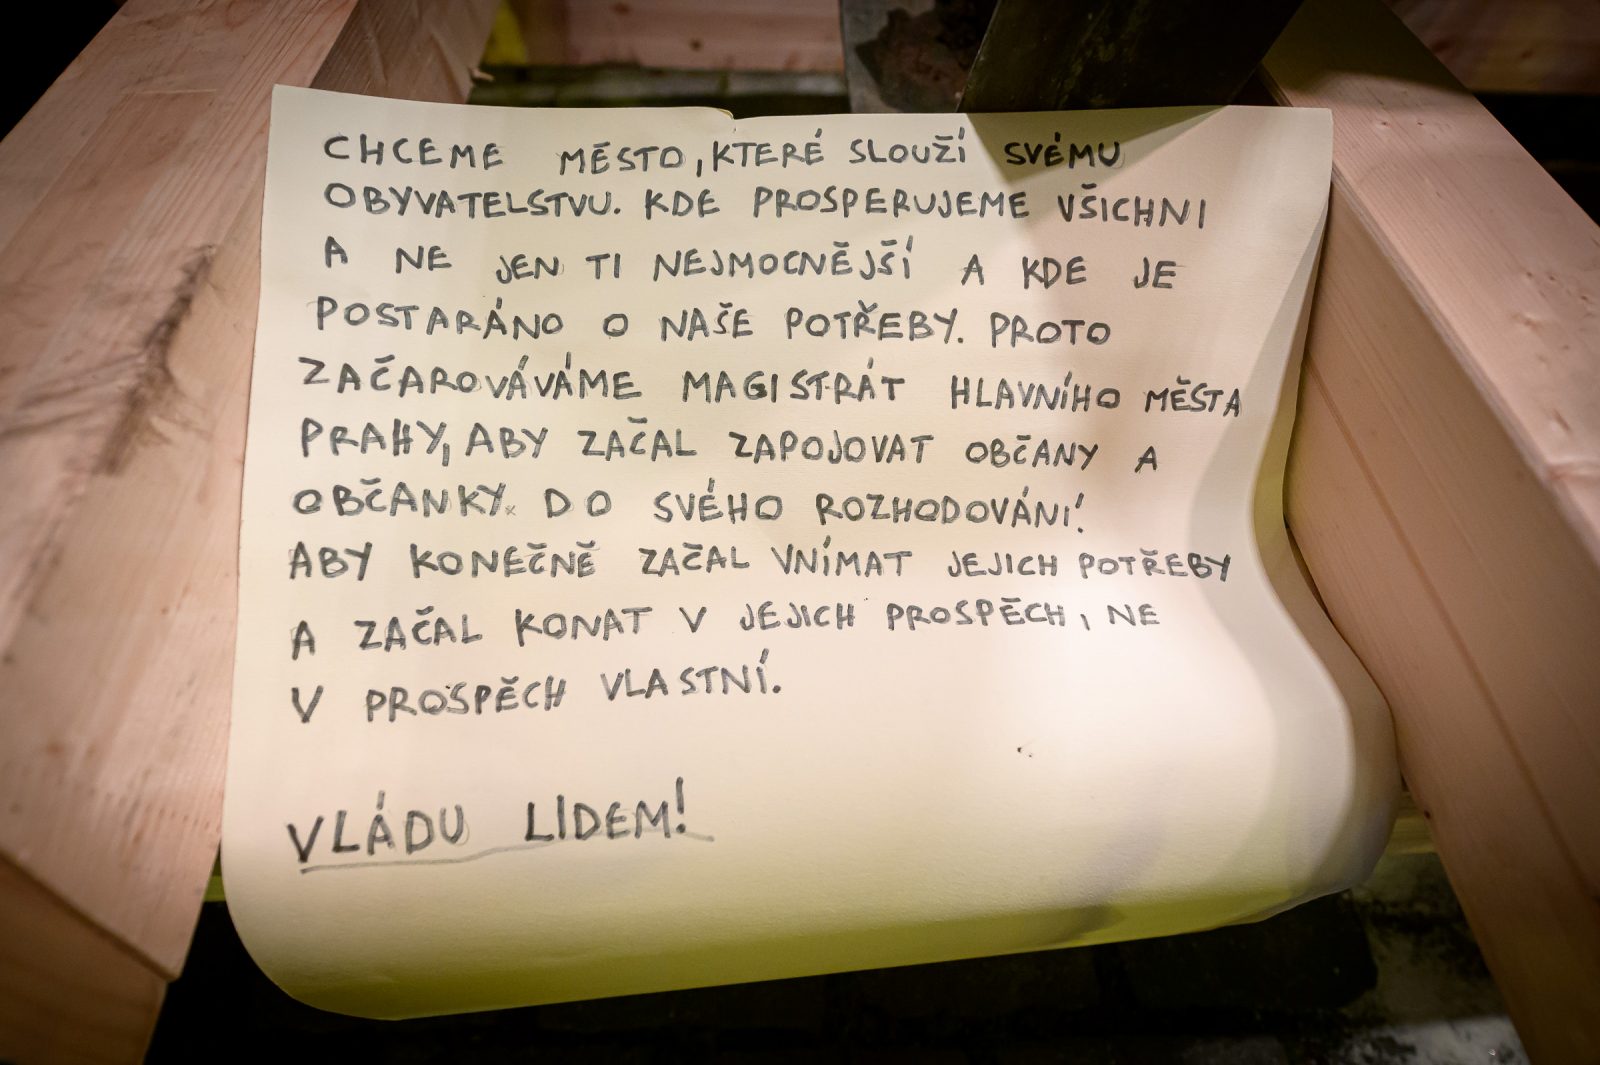 CHCEME MĚSTO, KTERÉ SLOUŽÍ SVÉMU
OBYVATELSTVU. KDE PROSPERUJEME VŠICHNI
A NE JEN TI NEJMOCNĚJŠÍ A KDE JE
POSTARÁNO O NAŠE POTŘEBY. PROTO
ZAČAROVÁVÁME MAGISTRÁT HLAVNÍHO MĚSTA
PRAHY, ABY ZAČAL ZAPOJOVAT OBČANY A
OBČANKY DO SVÉHO ROZHODOVÁNÍ!
ABY KONEČNĚ ZAČAL VNÍMAT JEJICH POTŘEBY
A ZAČAL KONAT V JEJICH PROSPĚCH, NE
V PROSPĚCH VLASTNÍ.
VLÁDU LIDEM!